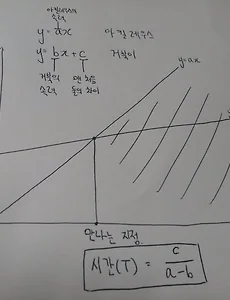 아킬레우스의
속력
y = ax 아킬레우스
y = bx + c 거북이
거북의 맨 처음
속력 둘의 차이
y=ax
만나는 지점
시간(T) = c / a-b